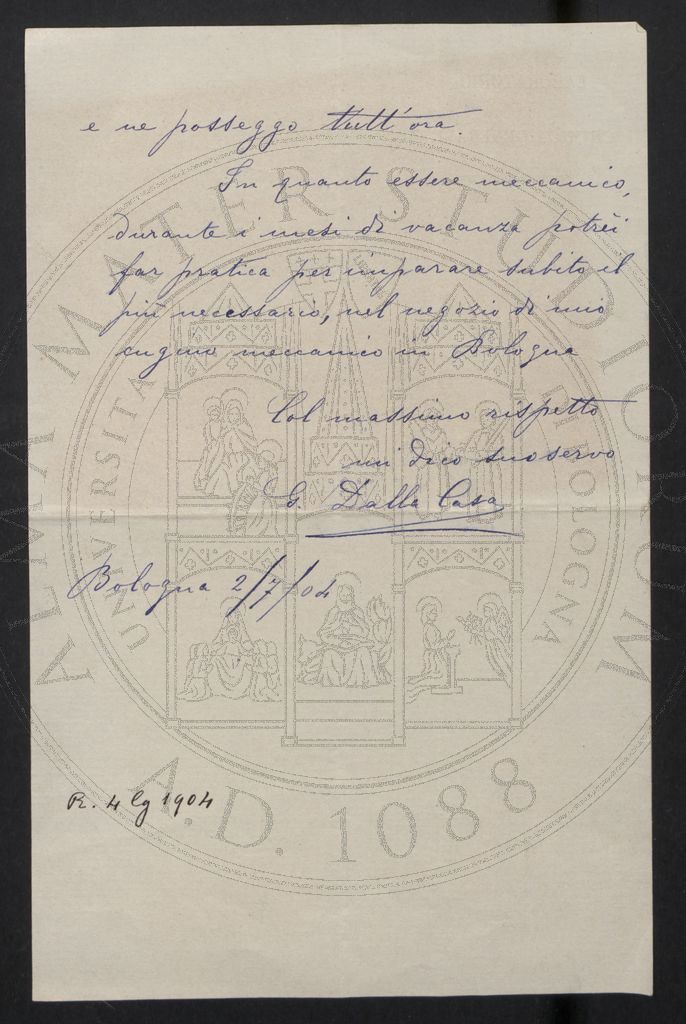 e ne posseggo tutt'ora.
In quanto essere meccanico,
durante i mesi di vacanza potrei
far pratica per imparare subito il
più necessario, nel negozio di mio
cugino meccanico in Bologna
Col massimo rispetto
mi dico suo servo
G. Dalla Casa
Bologna 2/7/04
R. 4 lg 1904
ALMA MATER STUDIORUM
UNIVERSITA DI BOLOGNA
A.D. 1088